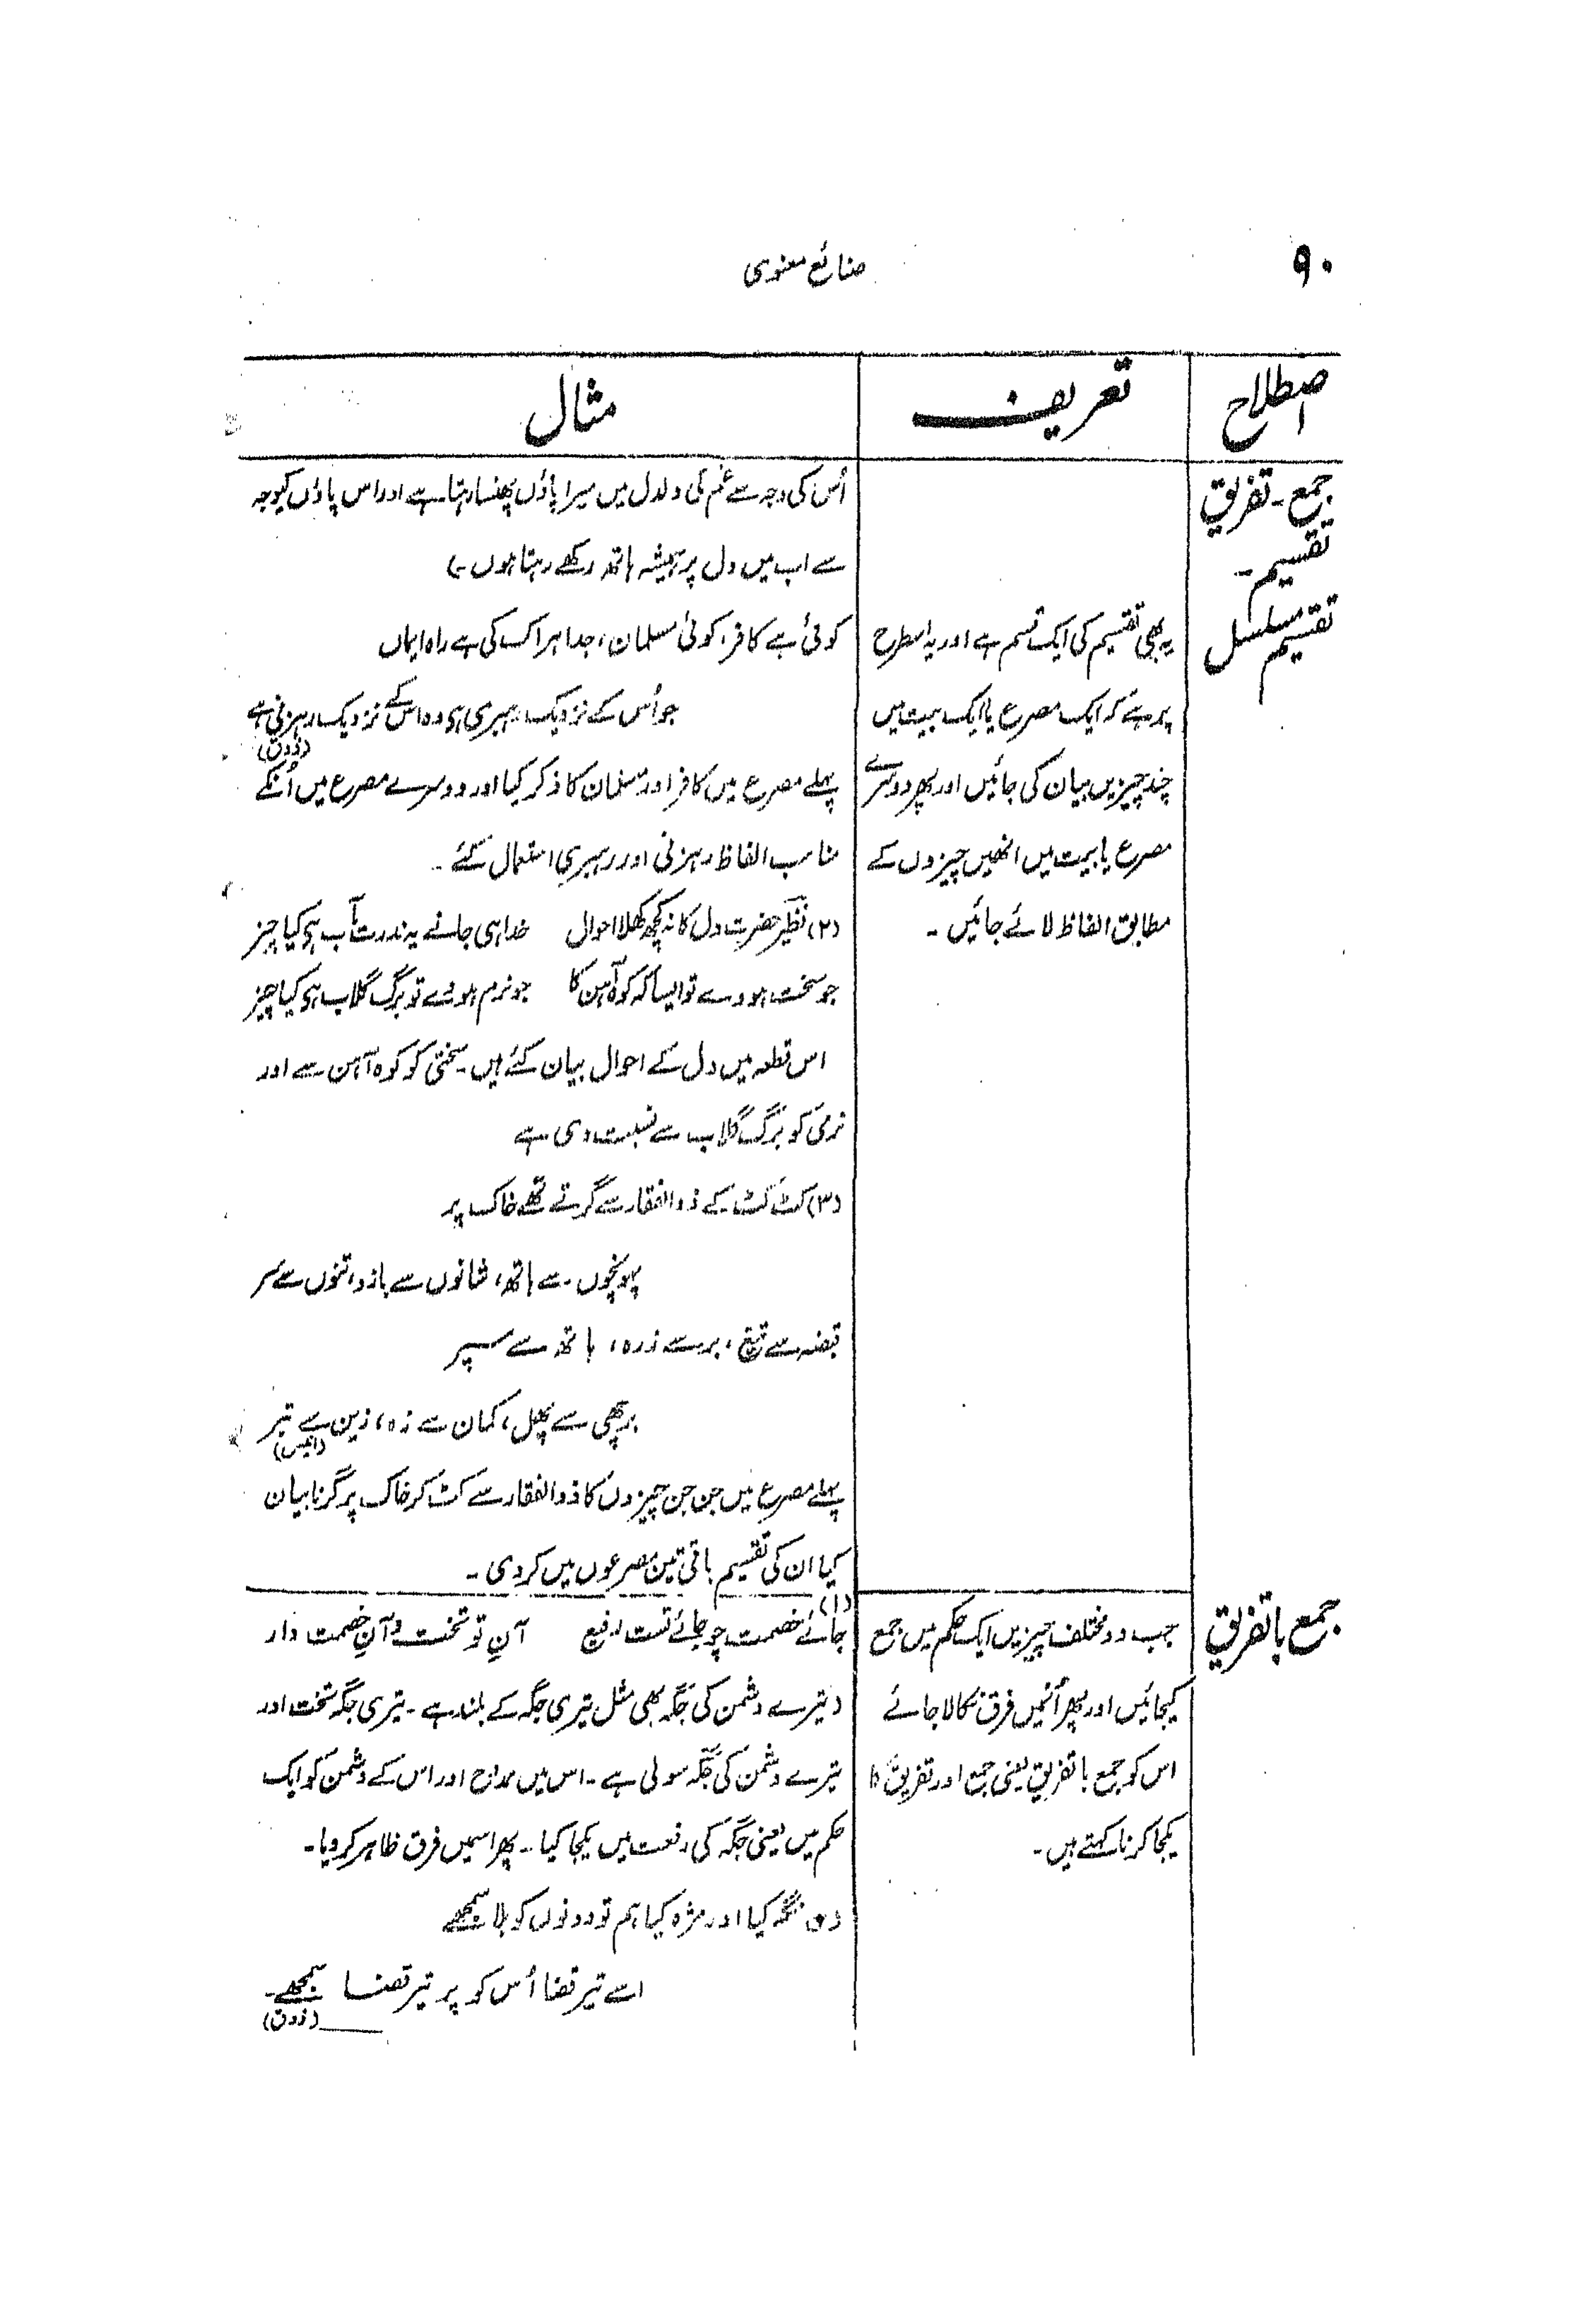 ۹۰
صنائع معنوی
اصطلاح
تعریف
مثال
جمع ۔ تفریق
تقسیم ۔
اُس کی وجہ سے غم کی دلدل میں میرا پاؤں پھنسا رہتا ہے اور اس پاؤں کیوجہ
سے اب میں دل پر ہمیشہ ہاتھ رکھے رہتا ہوں۔)
تقسیم مسلسل
یہ بھی تقسیم کی ایک قسم ہے اور یہ اسطرح
پر ہے کہ ایک مصرع یا ایک بیت میں
چند چیزیں بیان کی جائیں اور پھر دوسرے
مصرع یا بیت میں انھیں چیزوں کے
مطابق الفاظ لائے جائیں ۔
کوئی ہے کافر، کوئی مسلمان، جدا ہر اک کی ہے راہ ایماں
جو اُس کے نزدیک رہبری ہی وہ اس کے نزدیک رہزنی ہے
(ذوق)
پہلے مصرع میں کافر اور مسلمان کا ذکر کیا اور دوسرے مصرع میں اُنکے
مناسب الفاظ رہزنی اور رہبری استعمال کئے ۔
(۲) نظیر حضرت دل کا نہ کچھ کھلا احوال خدا ہی جانے یہ ندرت مآب ہی کیا چیز
جو سخت ہووے تو ایسا کہ کوہ آہن کا جو نرم ہووے تو برگ گلاب ہی کیا چیز
اس قطعہ میں دل کے احوال بیان کئے ہیں۔ سختی کو کوہ آہن سے اور
نرمی کو برگ گلاب سے نسبت دی ہے
(۳) کٹ کٹ کے ذوالفقار سے گرتے تھے خاک پر
پہونچوں سے ہاتھ، شانوں سے بازو، تنوں سے سر
قبضہ سے تیغ، بر سے زرہ، ہاتھ سے سپر
برچھی سے پھل، کمان سے زہ، زین سے تبر
(انیس)
پہلے مصرع میں جن جن چیزوں کا ذوالفقار سے کٹ کر خاک پر گرنا بیان
کیا ان کی تقسیم باقی تین مصرعوں میں کر دی ۔
جمع با تفریق
جب دو مختلف چیزیں ایک حکم میں جمع
کیجائیں اور پھر اُنمیں فرق نکالا جائے
اس کو جمع با تفریق یعنی جمع اور تفریق کا
یکجا کرنا کہتے ہیں ۔
(۱)
جائے خصمت چو جائے تست رفیع آنِ تو تخت و آنِ خصمت دار
(تیرے دشمن کی جگہ بھی مثل تیری جگہ کے بلند ہے ۔ تیری جگہ تخت اور
تیرے دشمن کی جگہ سولی ہے ۔ اس میں مداح اور اس کے دشمن کو ایک
حکم میں یعنی جگہ کی رفعت میں یکجا کیا ۔ پھر اسمیں فرق ظاہر کر دیا ۔
نگہ کیا اور مژہ کیا ہم تو دونوں کو بلا سمجھے
اسے تیر قضا اُس کو پر تیر قضا سمجھے۔
(ذوق)